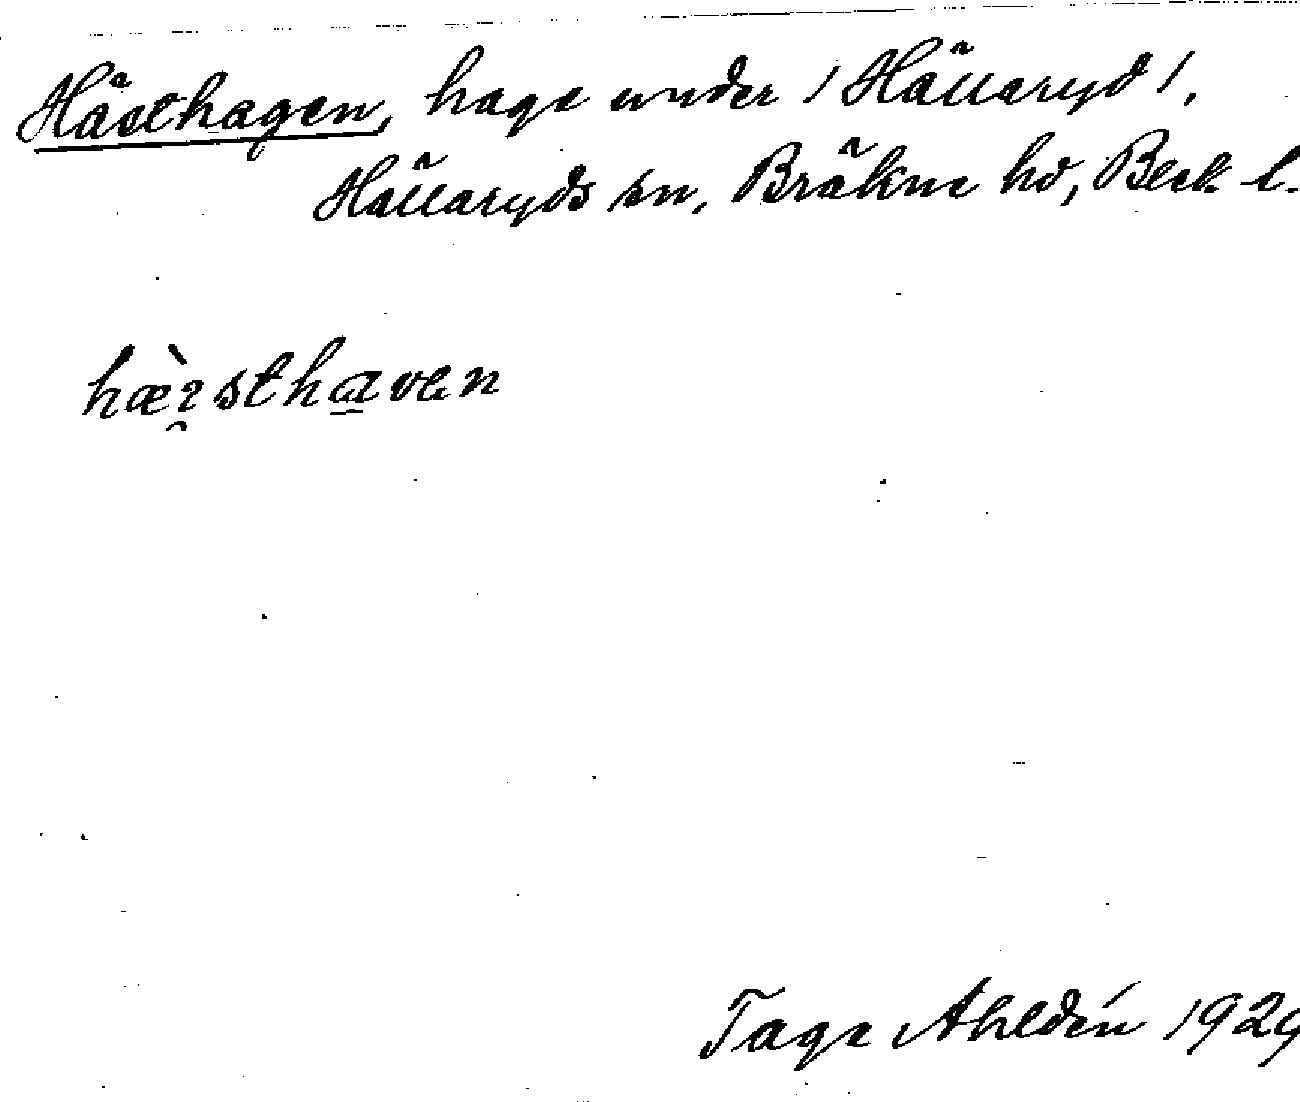 Hästhagen, hage under /Hällaryd/,
Hällaryds sn, Bräkne hd, Blek. l.
hæ̀i̯stha̲ven
Tage Ahldén 1929